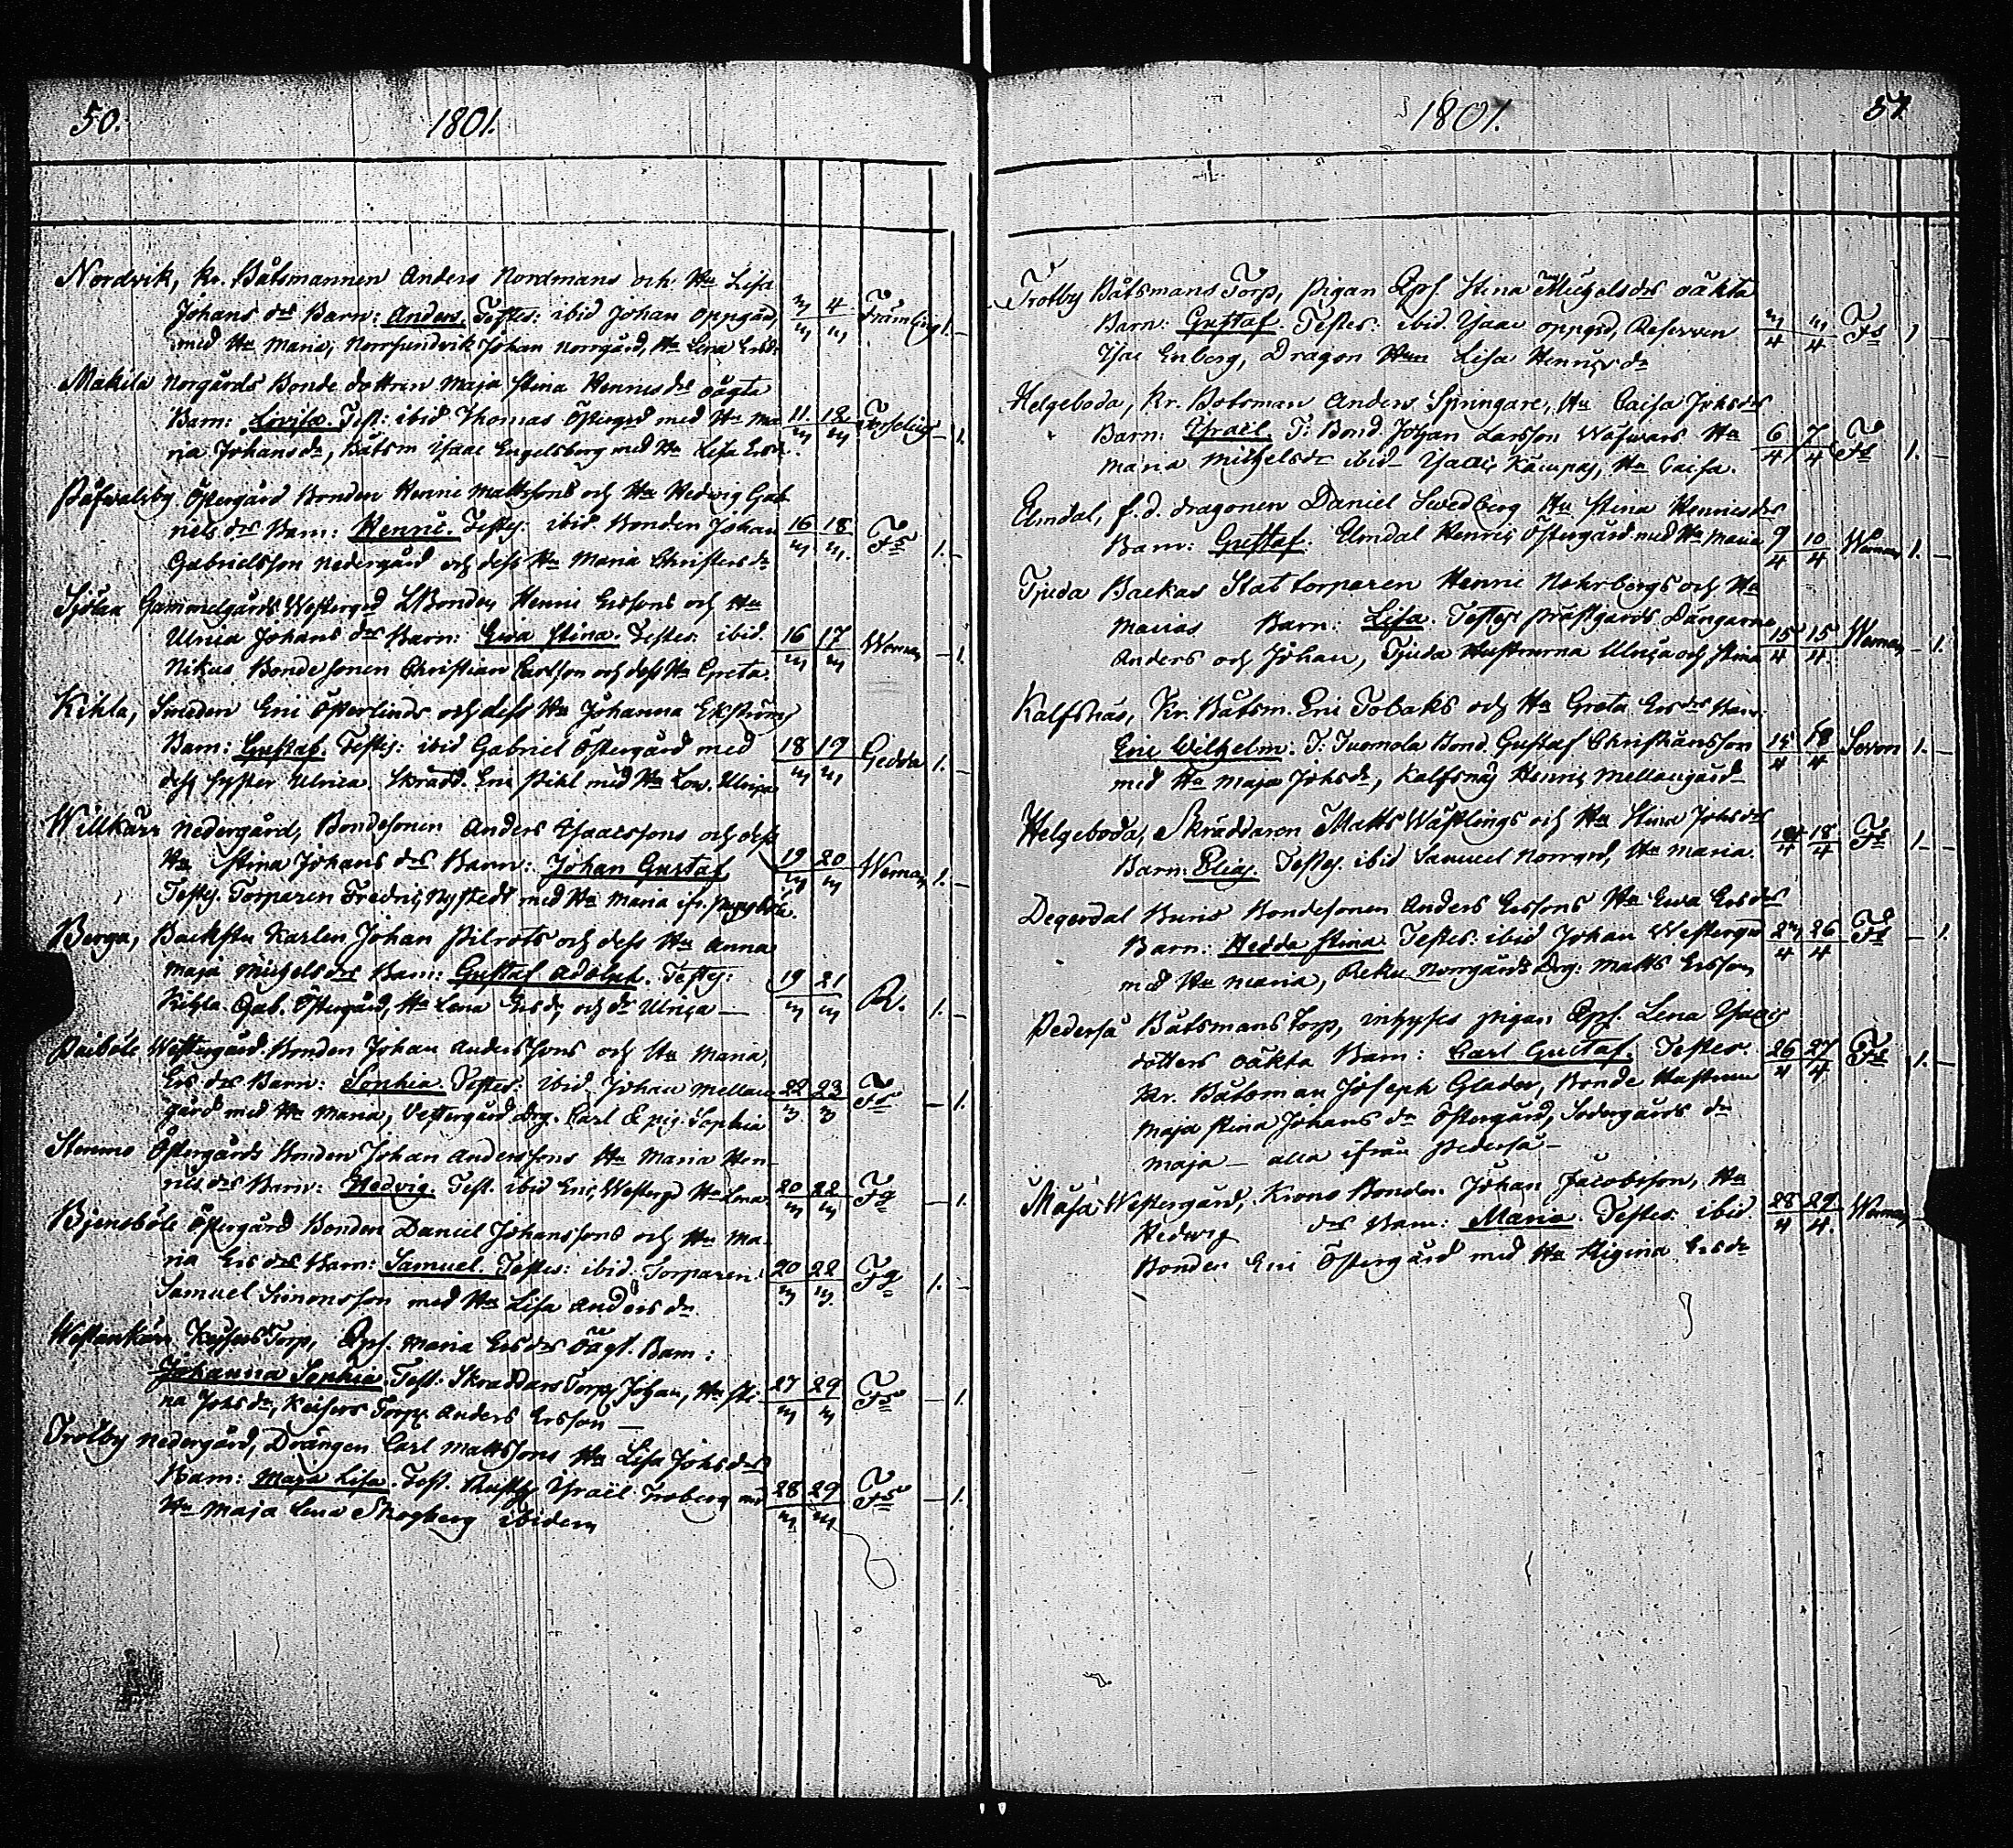 50. 1801.
Nordvik, kr. Båtsmannen Anders Nordmans och Hu Lisa
Johans dr Barn: Anders. Testes: ibid Johan Oppgård 3/3 4/3 Främling 1. –
med Hu Maria, Norrsundvik Johan Norrgård, Hu Lena Ersdr
Makila Norgårds Bonde dottren Maja Stina Henricsdr oägta
Barn: Lovisa. Test: ibid Thomas Östergrd med Hu Ma- 11./3 12/3 – 1.
ria Johansdr, Båtsm Isaac Engelsberg med Hu Lisa Ersdr.
Påfvalsby Östergård Bonden Henric Mattssons och Hu Hedvig Gab-
riels dr Barn: Henric. Testes: ibid Bonden Johan 16/3 18/3 Fs 1. –
Gabrielsson Nedergård och dess Hu Maria Christersdr
Sjölax Gammelgårds Westergrd LBonden Henric Erssons och Hu
Ulrica Johans dr Barn: Ewa Stina. Testes ibid. 16/3 17/3 Weman – 1.
Nikus Bondesonen Christian Carlsson och dess Hu Greta.
Kihla, Smeden Eric Österlinds och dess Hu Johanna Ekströms
Barn: Gustaf. Testes: ibid Gabriel Östergård med 18/3 19/3 Gedda 1. –
dess syster Ulrica. Skrädd. Eric Pihl med Hu Lov. Ulrica
Willkärr Nedergård, Bondesonen Anders Isaacssons och dess
Hu Stina Johans dr Barn: Johan Gustaf 19/3 20/3 Weman 1. –
Testes. Torparen Fredric Nystedt med Hu Maria ifr.
Berga, Backstu Karlen Johan Pilrots och dess Hu Anna
Maja Michelsdr Barn: Gustaf Adolph. Testes: 19/3 21/3 R. 1. –
Kihla Gab. Östergård, Hu Lena Ersdr och dr Ulrica —
Westergård. Bonden Johan Anderssons och Hu Maria
Ers dr Barn: Sophia. Testes: ibid Johan Mellan- 22/3 23/3 Fs – 1.
gård med Hu Maria, Vestergård Drg. Carl & pig. Sophia
Stenmo Östergårds Bonden Johan Anderssons Hu Maria Hen-
rics dr Barn: Hedvig. Test. ibid Eric Westergd Hu Lena 20/3 22/3 Fs – 1.
Bjensböle Östergård Bonden Daniel Johanssons och Hu Ma-
ria Ers dr Barn: Samuel. Testes: ibid. Torparen 20/3 22/3 Fs 1. –
Samuel Simonsson med Hu Lisa Anders dr.
Westankärr Keysers Torp, Qps. Maria Ersdrs oägt. Barn:
Johanna Sophia. Test: Skraddars Torp. Johan, Hu Sti- 27/3 29/3 Fs – 1.
na Johsdr, Keisers Torp. Anders Ersson —
Trotby Nedergård, Drängen Carl Mattssons Hu Lisa Johsdrs
Barn: Maja Lisa. Test. Rusth. Israël Troberg med 28/3 29/3 Fs – 1.
Hu Maja Lena Skogberg ibidem
1801. 51.
Trotby Båtsmans Torp, Pigan Qps. Stina Michelsdrs oäkta
Barn: Gustaf. Testes: ibid. Isaac Oppgrd, Reserven 3/4 3/4 Fs 1 –
Isac Enberg, Dragon Hun Lisa Henricsdr
Helgeboda, Kr. Botsman Anders Springare, Hu Caisa Johsdrs
Barn: Israël. T: Bond. Johan Larsson Wäfvars Hu 6/4 7/4 Fs 1. –
Maria Michelsdr ibid – Isaac Hu Caisa.
Elmdal, f.d. dragonen Daniel Swedberg Hu Stina Henricsdrs
Barn: Gustaf. Elmdal Henric Östergård med Hu Maria 9/4 10/4 Weman 1. –
Tjuda Backas Stattorparen Henric Nohrbergs och Hu
Marias Barn: Lisa. Testes Prästgårds Dängarne 15/4 15/4 Weman – 1.
Anders och Johan, Tjuda Hustrurna Ulrica och Stina
Kalfsnäs, Kr. Båtsm. Eric Tobaks och Hu Greta Ersdrs Barn:
Eric Wilhelm. T: Tuomola Bond. Gustaf Christiansson 15/4 18/4 1. –
med Hu Maja Johsdr, Kalfsnäs Henric Mellangård –
Helgeboda, Skräddaren Matts Wäftlings och Hu Stina Johsdrs
Barn: Elias. Testes. ibid Samuel Norrgrd, Hu Maria. 18/4 Fs 1 –
Degerdal Buris Bondesonen Anders Erssons Hu Ewa Ersdrs
Barn: Hedda Stina. Testes: ibid Johan Westergrd 23/4 26/4 Fs – 1.
med Hu Maria, Reku Norrgårds Drg: Matts Ersson
Pederså Båtsmans Torp, inhyses pigan Qps. Lena Isacs
dotters oäkta Barn: Carl Gustaf. Testes. 26/4 27/4 Fs 1. –
Kr. Båtsman Joseph Glader, Bonde Hustrun
Maja Stina Johans dr Östergård, Sodergårds dr
Maja — alla ifrån Pederså –
Måsa Westergård, Krono Bonden Johan Jacobsson, Hu
Hedwig drs Barn: Maria. Testes ibid. 28/4 29/4. Weman –
Bonden Eric Östergård med Hu Rigina Ersdr